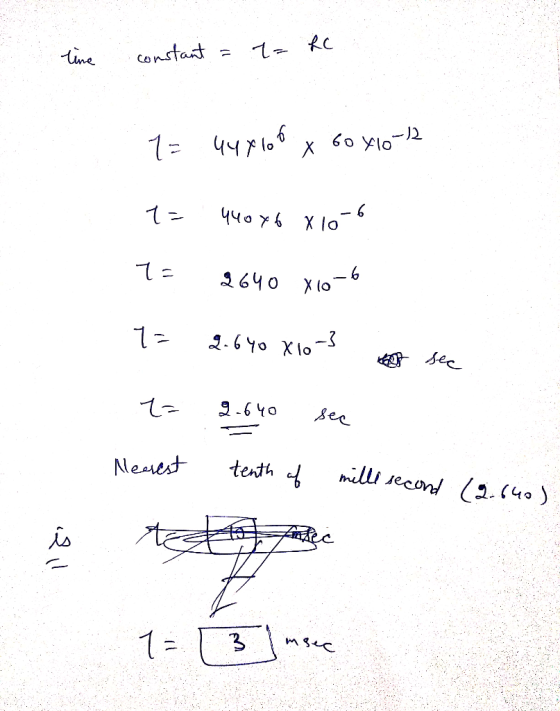 time constant = τ = RC
τ = 44×10⁶ × 60×10⁻¹²
τ = 440×6 ×10⁻⁶
τ = 2640 ×10⁻⁶
τ = 2.640 ×10⁻³ sec
τ = 2.640 sec
Nearest tenth of milli second (2.640)
is
τ = 3 msec